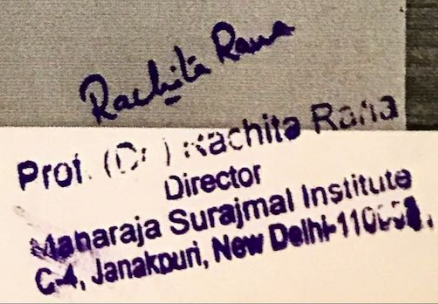 Rachita Rana
Prof. (Dr.) Rachita Rana
Director
Maharaja Surajmal Institute
C-4, Janakpuri, New Delhi-110058.